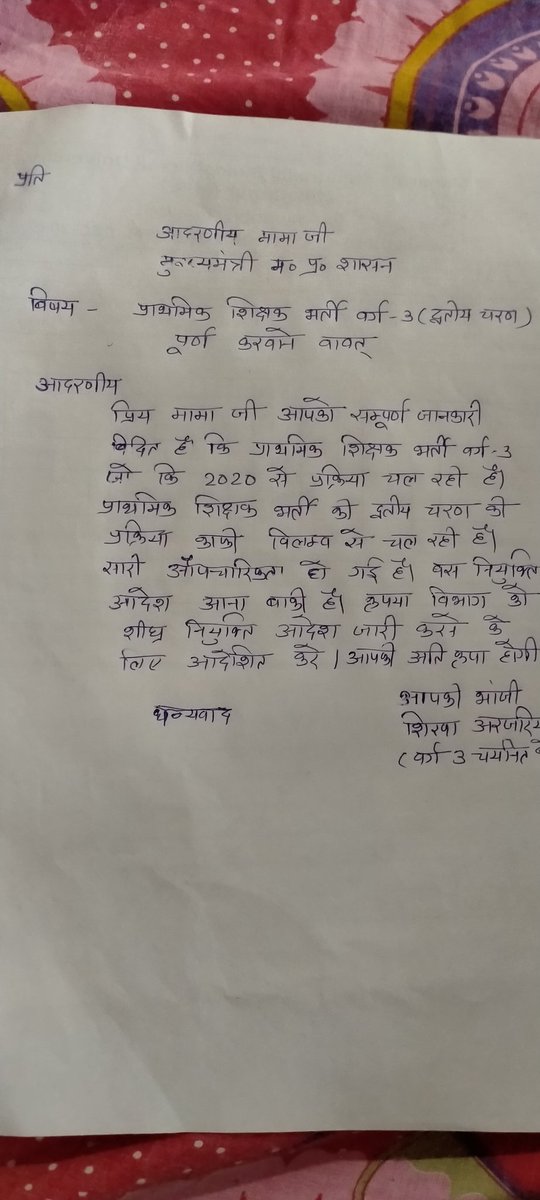 प्रति
आदरणीय मामा जी
मुख्यमंत्री म० प्र० शासन
विषय - प्राथमिक शिक्षक भर्ती वर्ग-3 (द्वतीय चरण)
पूर्ण करवाने वावत्
आदरणीय
प्रिय मामा जी आपको सम्पूर्ण जानकारी
विदित है कि प्राथमिक शिक्षक भर्ती वर्ग-3
जो कि 2020 से प्रक्रिया चल रही है।
प्राथमिक शिक्षक भर्ती की द्वतीय चरण की
प्रक्रिया काफी विलम्व से चल रही है।
सारी औपचारिकता हो गई है। वस नियुक्ति
आदेश आना वाकी है। कृपया विभाग को
शीघ्र नियुक्ति आदेश जारी करने के
लिए आदेशित करे। आपकी अति कृपा होगी
धन्यवाद
आपकी भांजी
शिखा अरजरिय
(वर्ग 3 चयनित